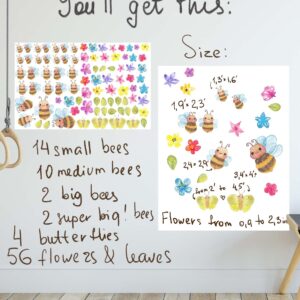 You'll get this:
Size:
1,3"x1,6"
1,9"x 2,3"
2,4"x 2,9"
3,4"x 4"
(from 2" to
4,5")
Flowers from 0,4 to 2,3 in
14 small bees
10 medium bees
2 big bees
2 super big! bees
4 butterflies
56 flowers & leaves